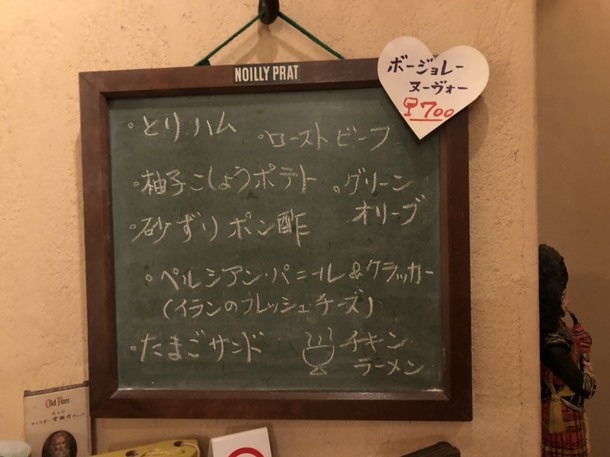 NOILLY PRAT
ボージョレー
ヌーヴォー
700
。とりハム
。ローストビーフ
。柚子こしょうポテト
。グリーン
オリーブ
。砂ずりポン酢
。ペルシアン・パニール&クラッカー
(イランのフレッシュチーズ)
。たまごサンド
チキン
ラーメン
Old Parr